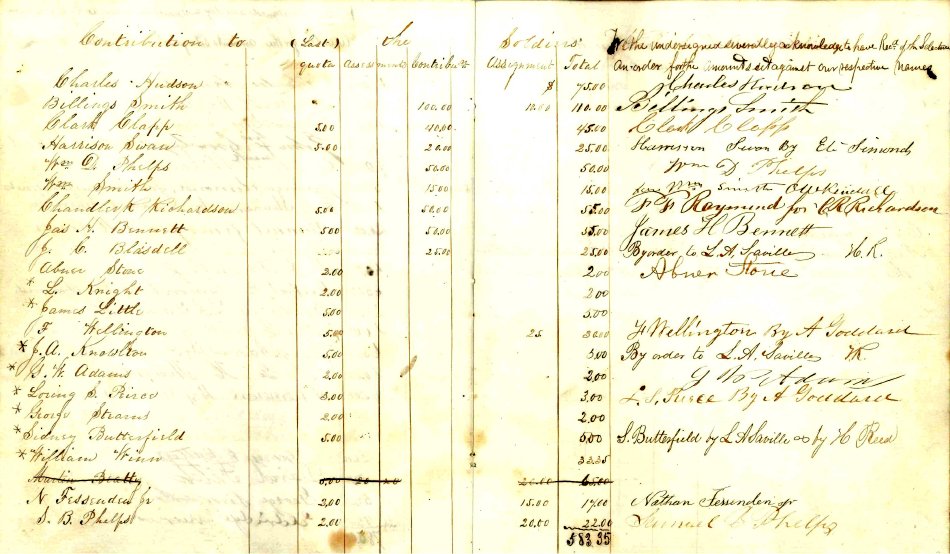 Contribution to (Last) the Soldiers
We the undersigned severally acknowledge to have Rect of the Selectmen
quota Assessment Contribut Assignment Total an order for the amount set against our respective names
Charles Hudson $ 75.00 Charles Hudson
Billings Smith 100.00 10.00 110.00 Billings Smith
Clark Clapp 5.00 40.00 45.00 Clark Clapp
Harrison Swan 5.00 20.00 25.00 Harrison Swan By Eli Simonds
Wm D. Phelps 50.00 50.00 Wm D Phelps
Wm Smith 15.00 15.00 Wm Smith
Chandler R Richardson 5.00 50.00 55.00 F F Raymond for C R Richardson
Jas H. Bennett 5.00 50.00 55.00 James H Bennett
J. C. Blasdell 25.00 25.00 By order to L. A. Saville H. R.
Abner Stone 2.00 2.00 Abner Stone
* L. Knight 2.00 2.00
* James Little 5.00 5.00
F Wellington 5.00 25 30.00 F Wellington By A Goddard
* J. A. Knowlton 5.00 5.00 By order to L. A. Saville HR
* G. W. Adams 2.00 2.00 G W Adams
* Loring S. Pierce 3.00 3.00 L. S. Pierce By A Goddard
* George Stearns 2.00 2.00
* Sidney Butterfield 5.00 5.00 S. Butterfield by L A Saville by H Reed
* William Winn 32.35
Martin Beatty 5.00 20.00 65.00
N Fessenden Jr 2.00 15.00 17.00 Nathan Fessenden Jr
S. B. Phelps 2.00 20.00 22.00 Samuel B Phelps
583.35